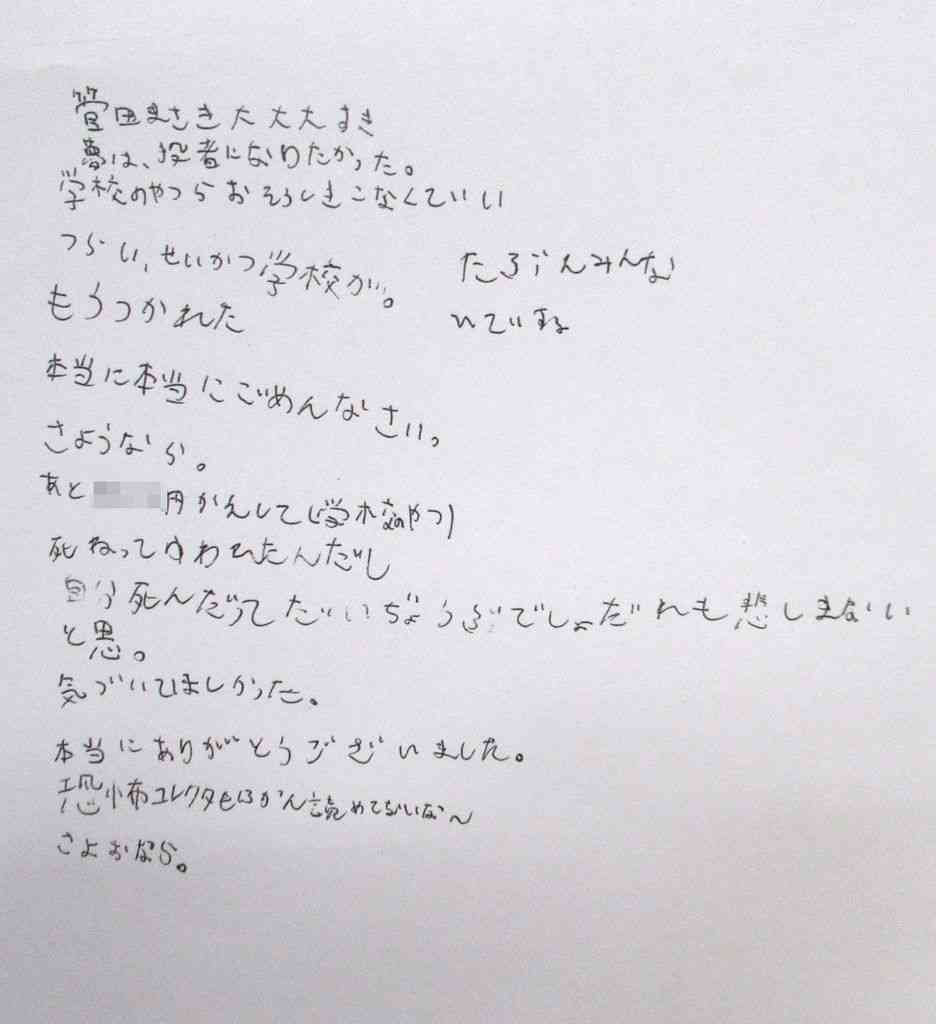 菅田まさき大大大すき
夢は、役者になりたかった。
学校のやつらおそうしきこなくていい
つらい、せいかつ学校が。
もうつかれた
たろぶんみんな
いている
本当に本当にごめんなさい。
さようなら。
あと 円かえして(学校のやつ)
死ねってゆわれたんだし
自分死んだってだいじょうぶでしょだれも悲しまない
と思。
気づいてほしかった。
本当にありがとうございました。
恐怖コレクター13かん読めてないな〜
さよおなら。